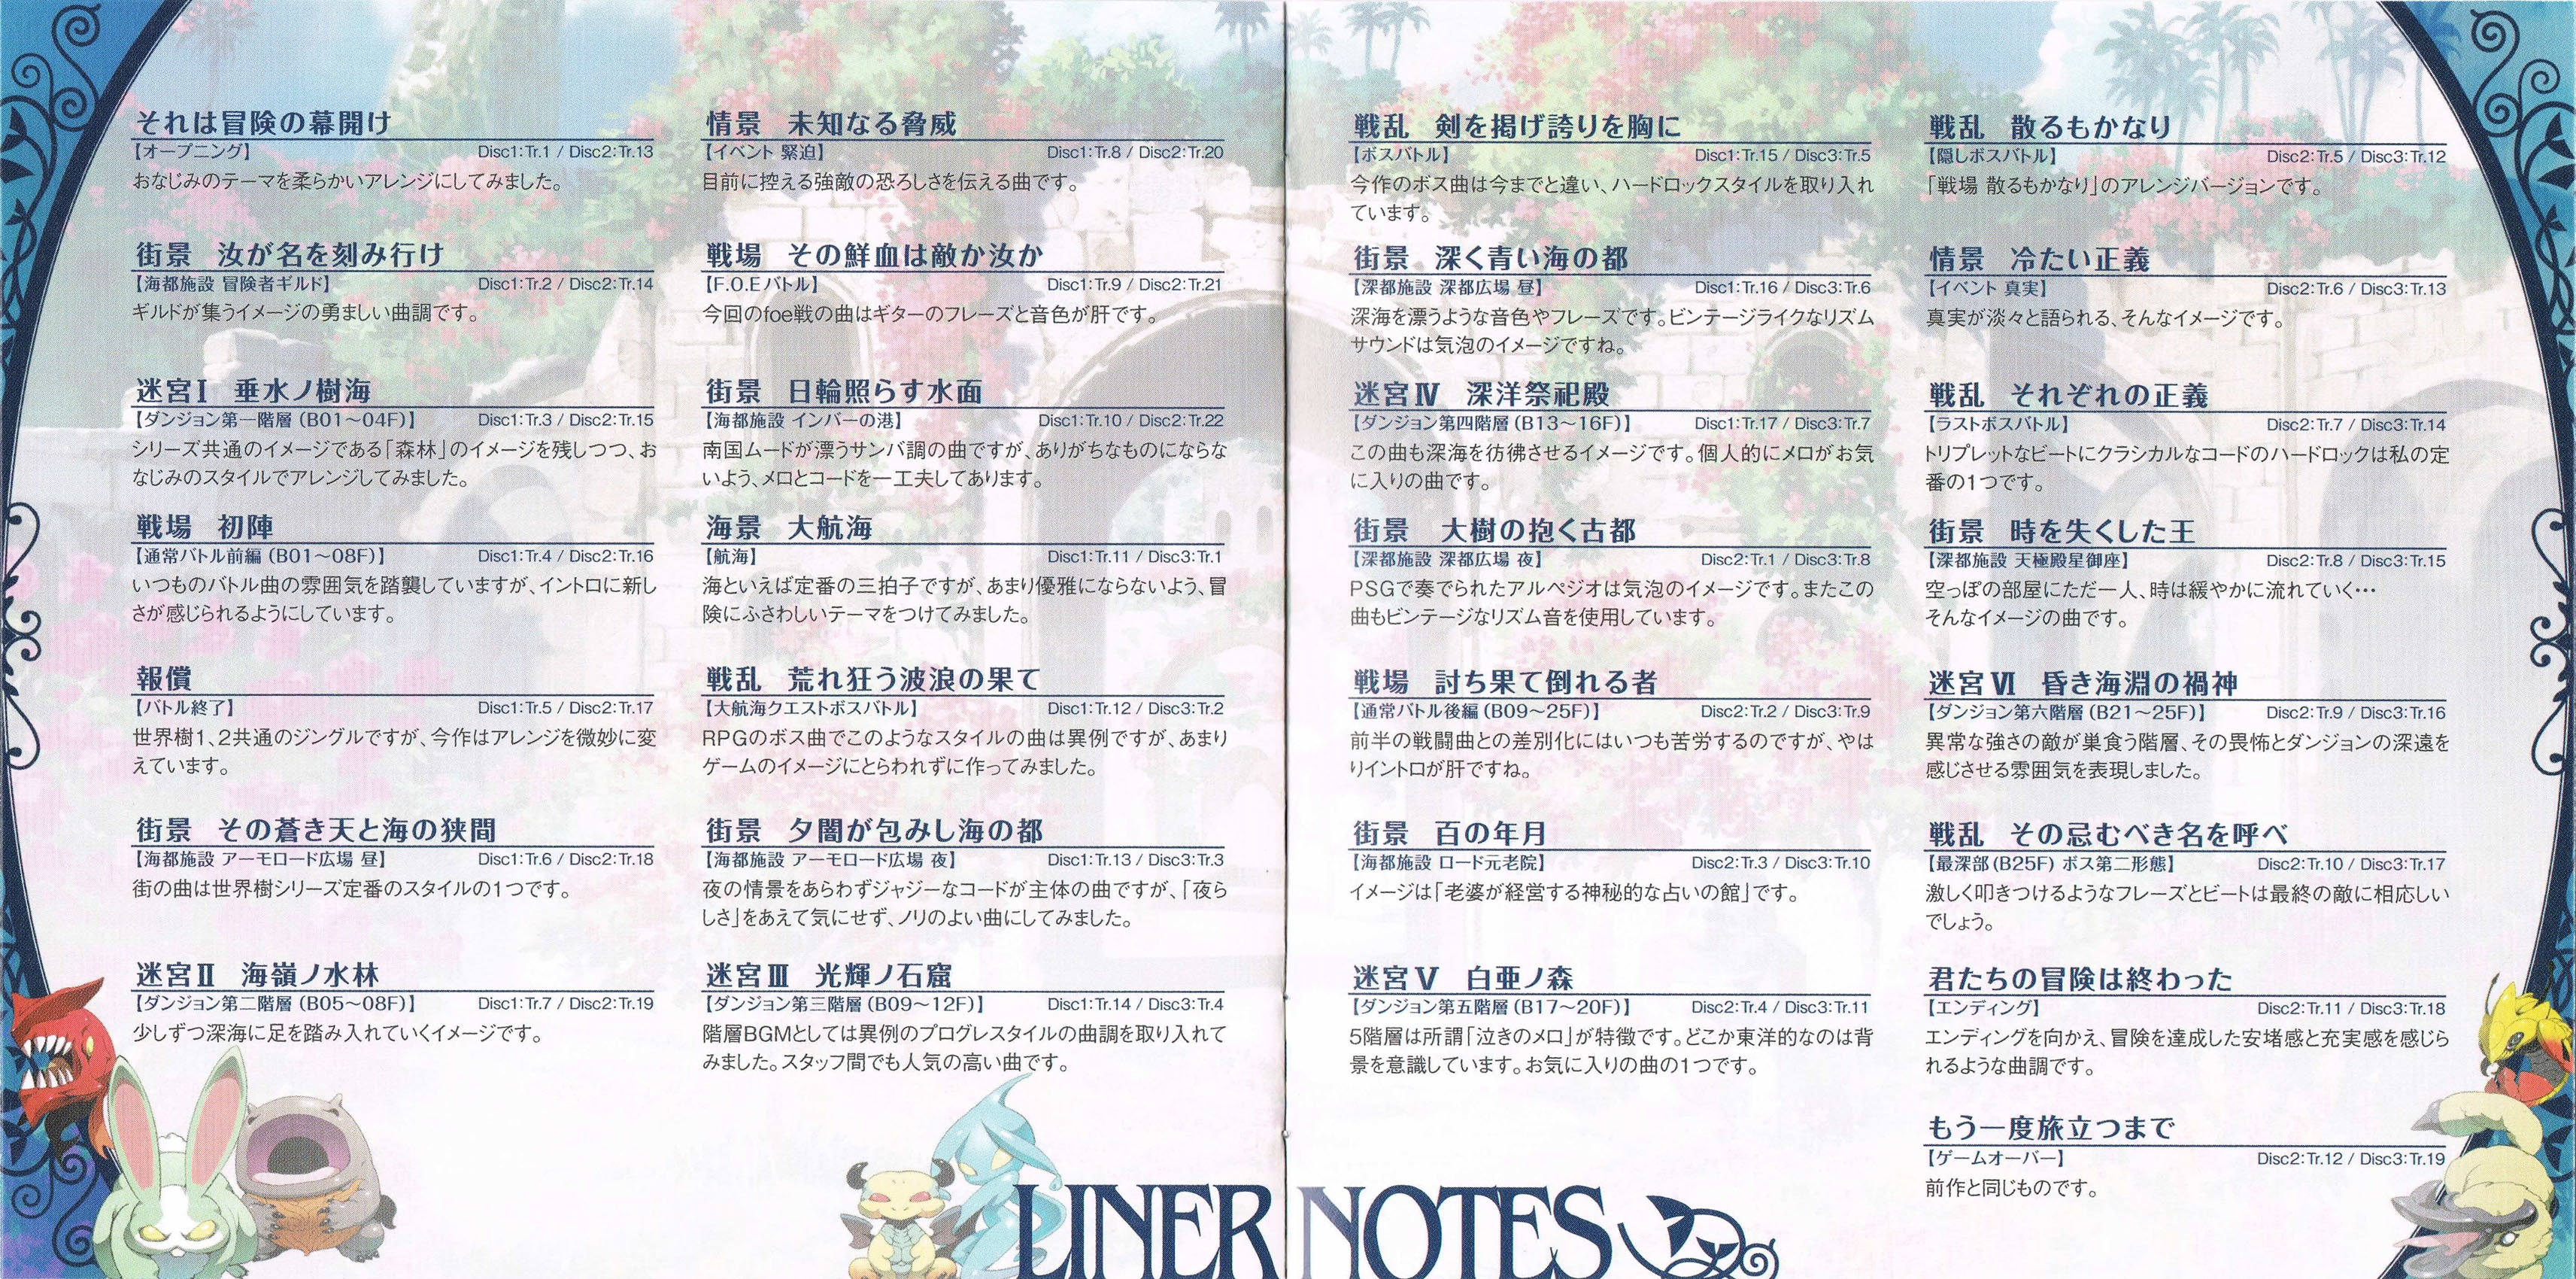 それは冒険の幕開け
【オープニング】 Disc1:Tr.1 / Disc2:Tr.13
おなじみのテーマを柔らかいアレンジにしてみました。
街景 汝が名を刻み行け
【海都施設 冒険者ギルド】 Disc1:Tr.2 / Disc2:Tr.14
ギルドが集うイメージの勇ましい曲調です。
迷宮Ⅰ 垂水ノ樹海
【ダンジョン第一階層（B01～04F）】 Disc1:Tr.3 / Disc2:Tr.15
シリーズ共通のイメージである「森林」のイメージを残しつつ、お
なじみのスタイルでアレンジしてみました。
戦場 初陣
【通常バトル前編（B01～08F）】 Disc1:Tr.4 / Disc2:Tr.16
いつものバトル曲の雰囲気を踏襲していますが、イントロに新し
さが感じられるようにしています。
報償
【バトル終了】 Disc1:Tr.5 / Disc2:Tr.17
世界樹1、2共通のジングルですが、今作はアレンジを微妙に変
えています。
街景 その蒼き天と海の狭間
【海都施設 アーモロード広場 昼】 Disc1:Tr.6 / Disc2:Tr.18
街の曲は世界樹シリーズ定番のスタイルの1つです。
迷宮Ⅱ 海嶺ノ水林
【ダンジョン第二階層（B05～08F）】 Disc1:Tr.7 / Disc2:Tr.19
少しずつ深海に足を踏み入れていくイメージです。
情景 未知なる脅威
【イベント 緊迫】 Disc1:Tr.8 / Disc2:Tr.20
目前に控える強敵の恐ろしさを伝える曲です。
戦場 その鮮血は敵か汝か
【F.O.Eバトル】 Disc1:Tr.9 / Disc2:Tr.21
今回のfoe戦の曲はギターのフレーズと音色が肝です。
街景 日輪照らす水面
【海都施設 インバーの港】 Disc1:Tr.10 / Disc2:Tr.22
南国ムードが漂うサンバ調の曲ですが、ありがちなものにならな
いよう、メロとコードを一工夫してあります。
海景 大航海
【航海】 Disc1:Tr.11 / Disc3:Tr.1
海といえば定番の三拍子ですが、あまり優雅にならないよう、冒
険にふさわしいテーマをつけてみました。
戦乱 荒れ狂う波浪の果て
【大航海クエストボスバトル】 Disc1:Tr.12 / Disc3:Tr.2
RPGのボス曲でこのようなスタイルの曲は異例ですが、あまり
ゲームのイメージにとらわれずに作ってみました。
街景 夕闇が包みし海の都
【海都施設 アーモロード広場 夜】 Disc1:Tr.13 / Disc3:Tr.3
夜の情景をあらわずジャジーなコードが主体の曲ですが、「夜ら
しさ」をあえて気にせず、ノリのよい曲にしてみました。
迷宮Ⅲ 光輝ノ石窟
【ダンジョン第三階層（B09～12F）】 Disc1:Tr.14 / Disc3:Tr.4
階層BGMとしては異例のプログレスタイルの曲調を取り入れて
みました。スタッフ間でも人気の高い曲です。
戦乱 剣を掲げ誇りを胸に
【ボスバトル】 Disc1:Tr.15 / Disc3:Tr.5
今作のボス曲は今までと違い、ハードロックスタイルを取り入れ
ています。
街景 深く青い海の都
【深都施設 深都広場 昼】 Disc1:Tr.16 / Disc3:Tr.6
深海を漂うような音色やフレーズです。ビンテージライクなリズム
サウンドは気泡のイメージですね。
迷宮Ⅳ 深洋祭祀殿
【ダンジョン第四階層（B13～16F）】 Disc1:Tr.17 / Disc3:Tr.7
この曲も深海を彷彿させるイメージです。個人的にメロがお気
に入りの曲です。
街景 大樹の抱く古都
【深都施設 深都広場 夜】 Disc2:Tr.1 / Disc3:Tr.8
PSGで奏でられたアルペジオは気泡のイメージです。またこの
曲もビンテージなリズム音を使用しています。
戦場 討ち果て倒れる者
【通常バトル後編（B09～25F）】 Disc2:Tr.2 / Disc3:Tr.9
前半の戦闘曲との差別化にはいつも苦労するのですが、やは
りイントロが肝ですね。
街景 百の年月
【海都施設 ロード元老院】 Disc2:Tr.3 / Disc3:Tr.10
イメージは「老婆が経営する神秘的な占いの館」です。
迷宮Ⅴ 白亜ノ森
【ダンジョン第五階層（B17～20F）】 Disc2:Tr.4 / Disc3:Tr.11
5階層は所謂「泣きのメロ」が特徴です。どこか東洋的なのは背
景を意識しています。お気に入りの曲の1つです。
戦乱 散るもかなり
【隠しボスバトル】 Disc2:Tr.5 / Disc3:Tr.12
「戦場 散るもかなり」のアレンジバージョンです。
情景 冷たい正義
【イベント 真実】 Disc2:Tr.6 / Disc3:Tr.13
真実が淡々と語られる、そんなイメージです。
戦乱 それぞれの正義
【ラストボスバトル】 Disc2:Tr.7 / Disc3:Tr.14
トリプレットなビートにクラシカルなコードのハードロックは私の定
番の1つです。
街景 時を失くした王
【深都施設 天極殿星御座】 Disc2:Tr.8 / Disc3:Tr.15
空っぽの部屋にただ一人、時は緩やかに流れていく…
そんなイメージの曲です。
迷宮Ⅵ 昏き海淵の禍神
【ダンジョン第六階層（B21～25F）】 Disc2:Tr.9 / Disc3:Tr.16
異常な強さの敵が巣食う階層、その畏怖とダンジョンの深遠を
感じさせる雰囲気を表現しました。
戦乱 その忌むべき名を呼べ
【最深部（B25F） ボス第二形態】 Disc2:Tr.10 / Disc3:Tr.17
激しく叩きつけるようなフレーズとビートは最終の敵に相応しい
でしょう。
君たちの冒険は終わった
【エンディング】 Disc2:Tr.11 / Disc3:Tr.18
エンディングを向かえ、冒険を達成した安堵感と充実感を感じら
れるような曲調です。
もう一度旅立つまで
【ゲームオーバー】 Disc2:Tr.12 / Disc3:Tr.19
前作と同じものです。
LINER NOTES